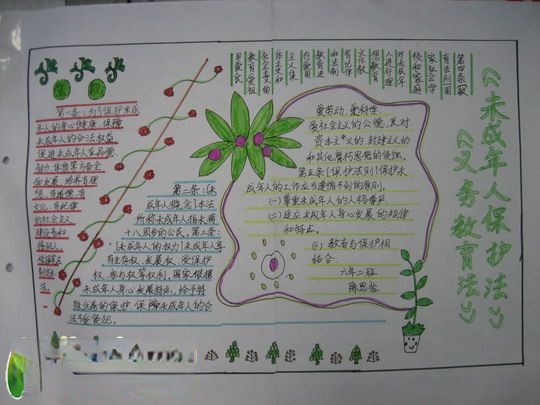 《未成年人保护法》
《义务教育法》
第一条:为了保护未成
年人的身心健康,保障
未成年人的合法权益
促进未成年人在品德、
智力、体质等方面全
面发展,培养有理
想、有道德、有
文化、有纪律
的社会主义
第二条:(未
成年人概念)本法
所称未成年人指未满
十八周岁的公民。第三条:
(未成年人的权力)未成年人享
有生存权、发展权、受保护
权、参与权等权利,国家根据
未成年人身心发展特点,给予特
殊、优先的保护,保障未成年人的合
法不受侵犯。
第四条(教
育法则)国
家社会学
校和家庭
对未成年
人进行理
想教育
文化教
育
爱劳动、爱科学、
爱社会主义的公德,反对
资本主义的、封建主义的
和其他腐朽思想的侵蚀。
第五条(保护法则)保护未
成年人的工作应当遵循下列的原则。
(一)尊重未成年人的人格尊严
(二)适应未成年人身心发展的规律
和特点。
(三)教育与保护相
结合。
六年二班